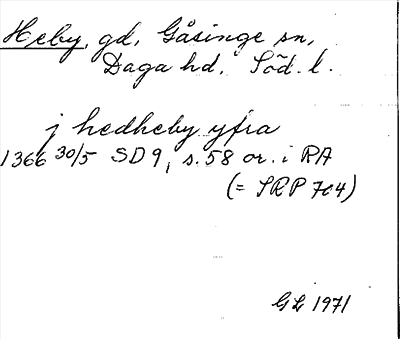 Heby, gd, Gåsinge sn,
Daga hd, Söd. l.
j hedheby yfra
1366 30/5 SD 9, s. 58 or. i RA
(= SRP 704)
GL 1971